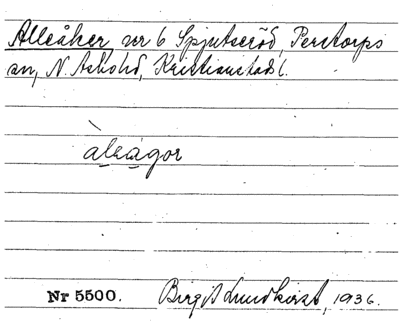 Alleåker, nr 6 Spjutseröd, Perstorps
sn, N. Åsbohd, Kristianstads l.
àleågor
Nr 5500. Birgit Lundkvist, 1936.